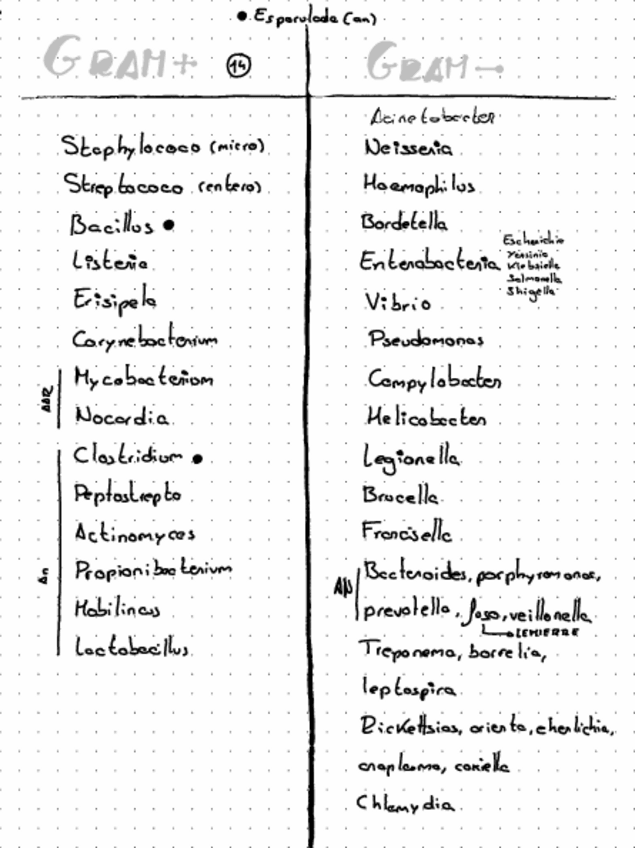 • Esporulada (an)
GRAM+ 14
Staphylococo (micro)
Streptococo (entero)
Bacillus •
Listeria
Erisipela
Corynebacterium
AAR
Mycobacterium
Nocardia
An
Clostridium •
Peptostrepto
Actinomyces
Propionibacterium
Mobilincus
Lactobacillus
GRAM-
Acinetobacter
Neisseria
Haemophilus
Bordetella
Enterobacteria
Escherichia
Yersinia
Klebsiella
Salmonella
Shigella
Vibrio
Pseudomonas
Campylobacter
Helicobacter
Legionella
Brucella
Francisella
AN
Bacteroides, porphyromonas,
prevotella, fuso, veillonella
LEMIERRE
Treponema, borrelia,
leptospira
Rickettsias, orienta, eherlichia,
anaplasma, coxiella
Chlamydia